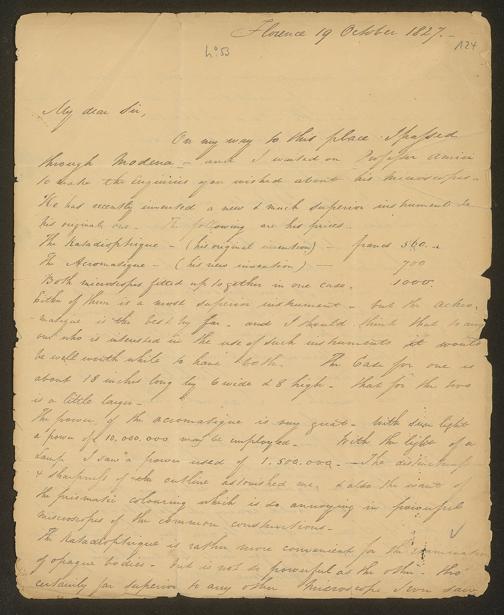 Florence 19 October 1827.-
No 53
124
My dear Sir,
On my way to this place I passed
through Modena - and I waited on Professor Amici
to make the enquiries you wished about his microscopes.-
He has recently invented a new & much superior instrument to
his original one. The following are his prices.
The Katadioptrique - (his original invention) - francs 560.
The Acromatique - (his new invention) - 700
Both microscopes fitted up together in one case. 1000.
Either of them is a most superior instrument - but the acro-
matique is the best by far - and I should think that to any
one who is interested in the use of such instruments it would
be well worth while to have both. The Case for one is
about 18 inches long by 6 wide & 8 high - that for the two
is a little larger -
The power of the acromatique is very great - With sun light
a power of 10,000.000 may be employed.- With the light of a
lamp I saw a power used of 1.500.000.- The distinctness
& sharpness of the outline astonished me, & also the want of
the prismatic colouring which is so annoying in powerful
microscopes of the common constructions.-
The Katadioptrique is rather more convenient for the examination
of opaque bodies - but is not so powerful as the other - tho'
certainly far superior to any other Microscope I ever saw